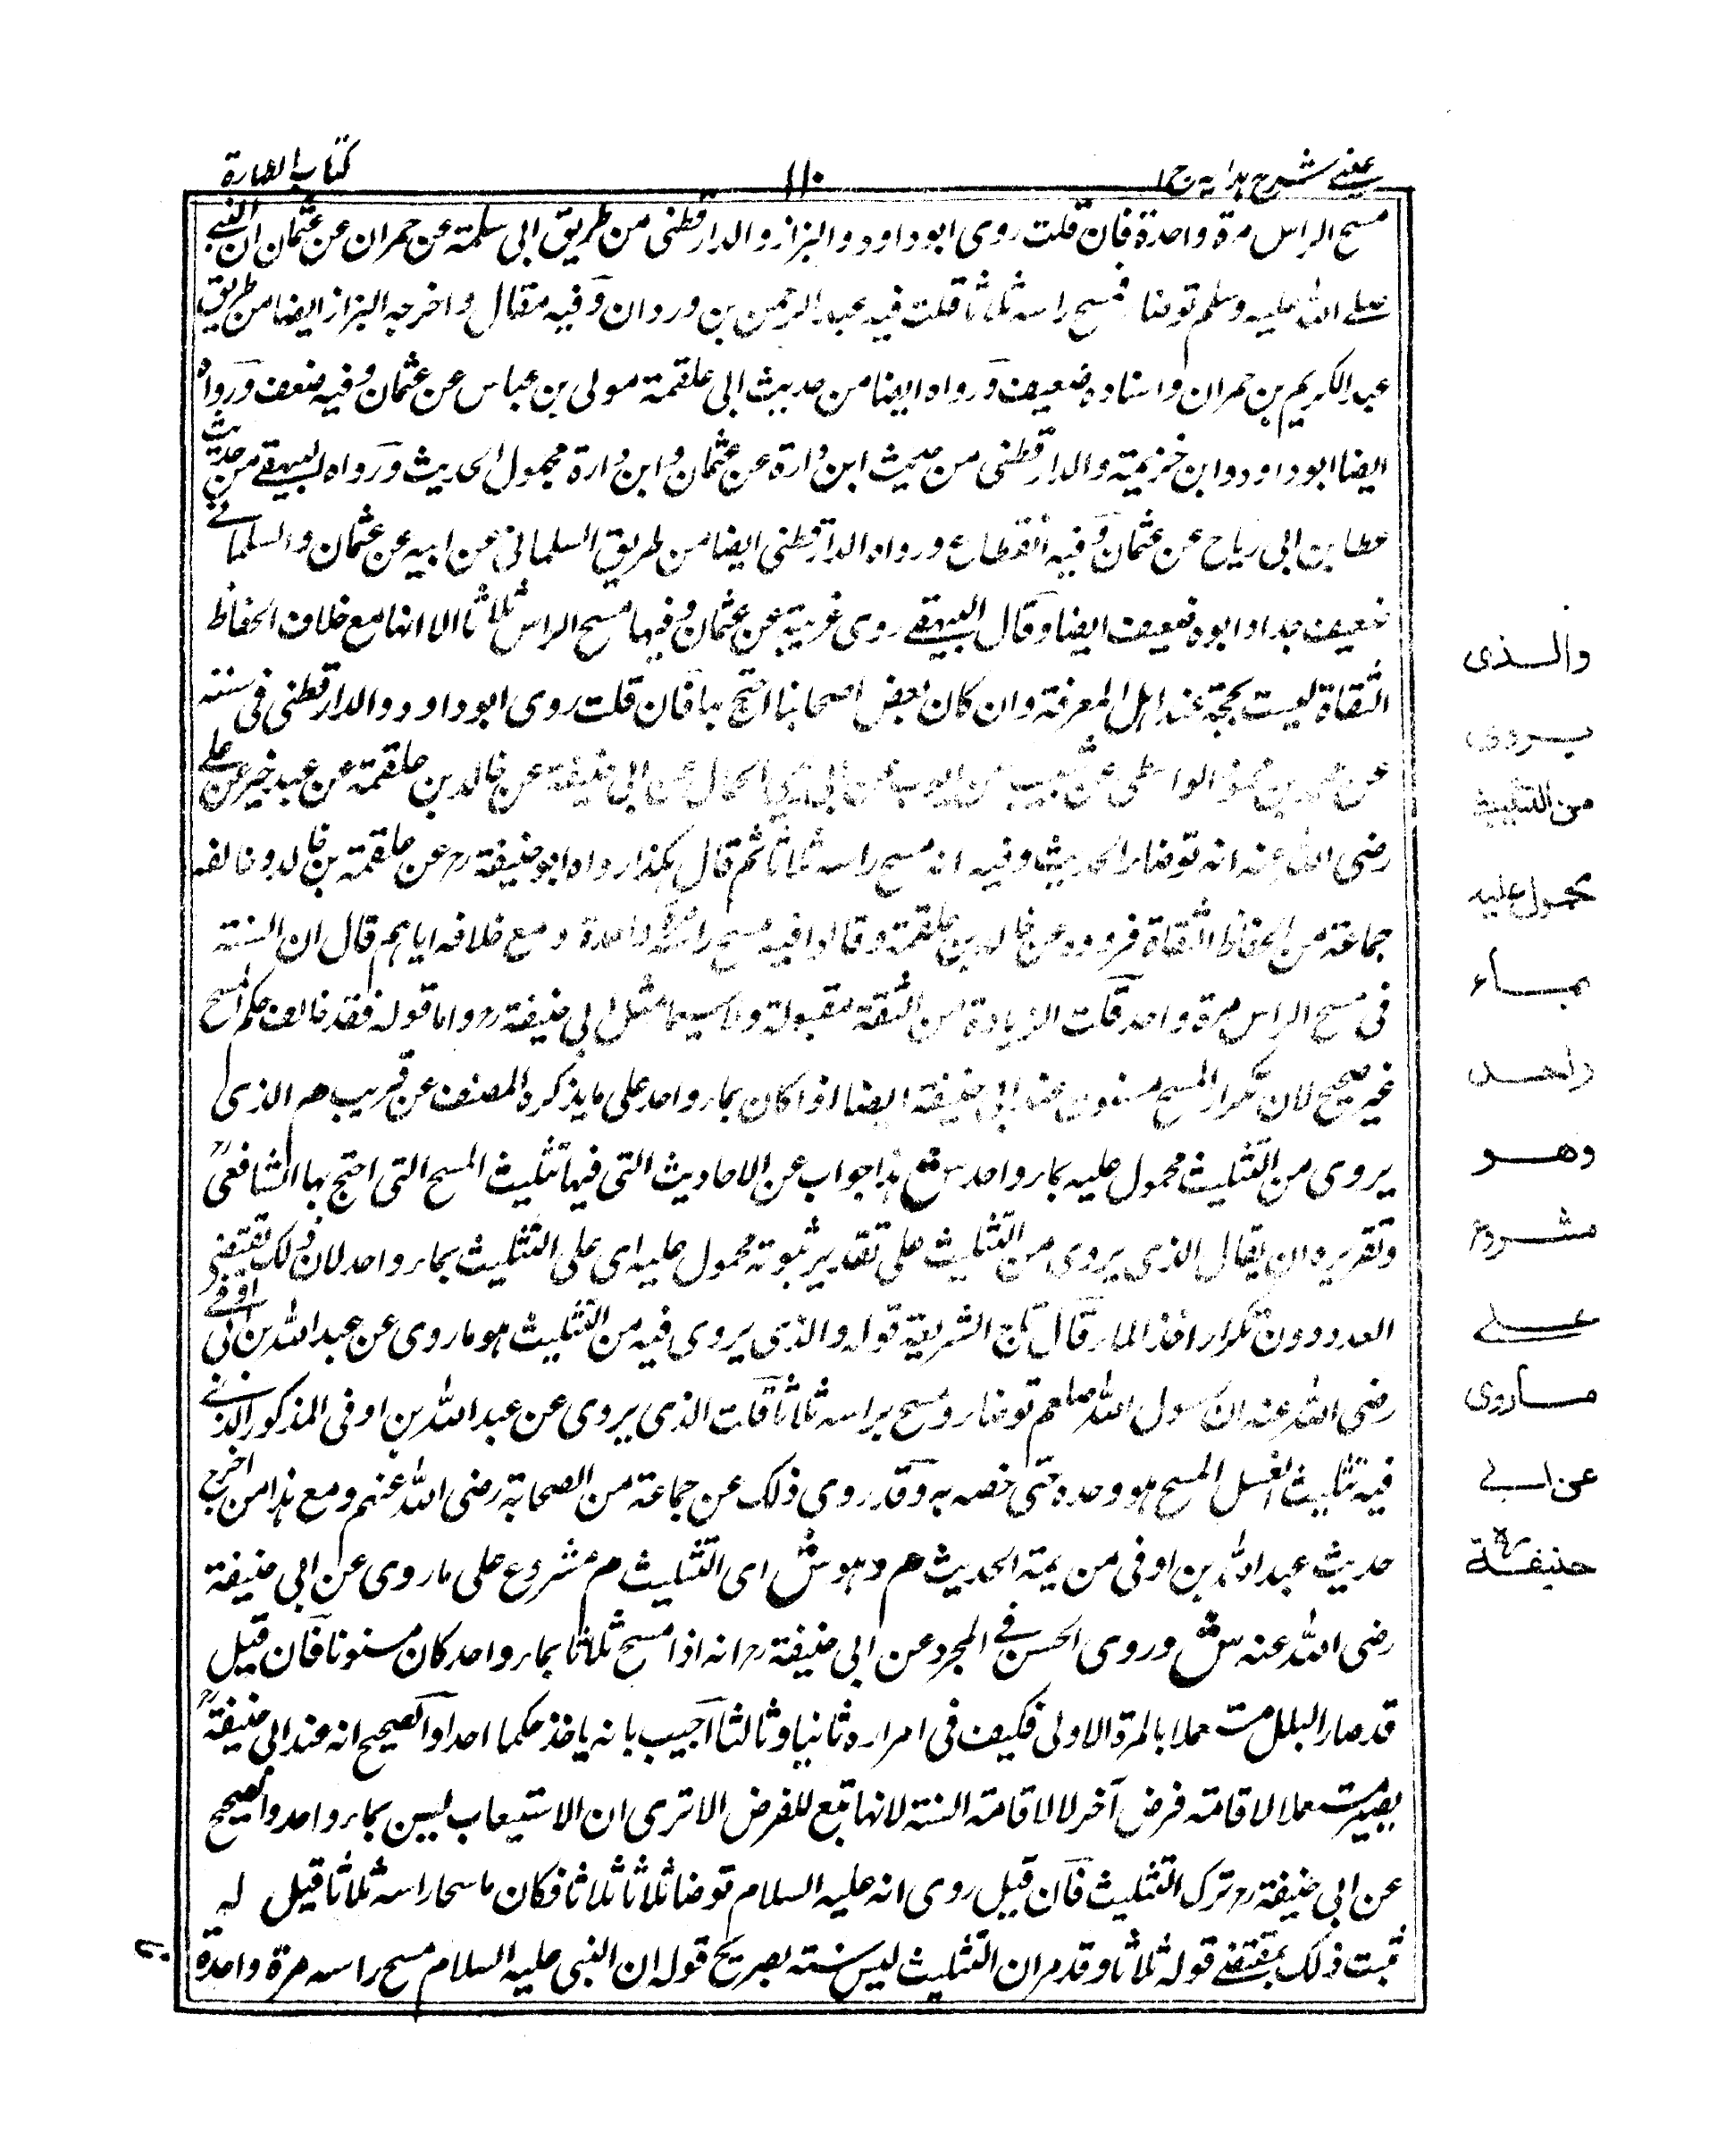 عينے شرح ہدایہ ج ۱
۱۱۰
کتاب الطہارة
مسح الراس مرة واحدة فان قلت روى ابو داود والبزاز والدارقطنى من طريق ابى سلمة عن حمران عن عثمان ان النبے
صلے اللہ علیہ وسلم توضا فمسح راسه ثلاثا قلت فيه عبد الرحمن بن وردان وفيه مقال واخرجه البزاز ايضا من طريق
عبد الكريم بن حمران واسناده ضعيف ورواه ايضا من حديث ابى علقمة مولى بن عباس عن عثمان وفيه ضعف ورواه
ايضا ابو داود وابن خزيمة والدارقطنى من حديث ابن دارة عن عثمان وابن دارة مجهول الحديث ورواه البيهقے من حديث
عطا بن ابى رباح عن عثمان وفيه انقطاع ورواه الدارقطنى ايضا من طريق السلمانى عن ابيه عن عثمان والسلمانے
ضعيف جدا وابوه ضعيف ايضا وقال البيهقے روى غريبة عن عثمان وفيها مسح الراس ثلاثا الا انها مع خلاف الحفاظ
الثقاة ليست بحجة عند اہل المعرفة وان كان بعض اصحابنا احتج بہا فان قلت روى ابو داود والدارقطنى فى سننه
عن محمد بن محمود الواسطى عن شعيب بن ايوب عن ابى يحيى الحمال عن ابى حنيفة عن خالد بن علقمة عن عبد خير عن علے
رضى اللہ عنہ انه توضا الحديث وفيه انه مسح راسه ثلاثا ثم قال ہكذا رواه ابو حنيفة رح عن علقمة بن خالد وخالفہ
جماعة من الحفاظ الثقاة فرووه عن خالد بن علقمة وقالوا فيه مسح راسه مرة واحدة ومع خلافه اياہم قال ان السنة
فى مسح الراس مرة واحد قلت الزيادة من الثقة مقبولة ولا سيما مثل ابى حنيفة رح واما قوله فقد خالف حكم المسح
غير صحيح لان تكرار المسح مسنون عند ابى حنيفة ايضا اذا كان بماء واحد على ما يذكره المصنف عن قريب م الذى
يروى من التثليث محمول عليه بماء واحد ش ہذا جواب عن الاحاديث التى فيها تثليث المسح التى احتج بها الشافعى رح
وتقريره ان يقال الذى يروى من التثليث على تقدير ثبوته محمول عليه اى على التثليث بماء واحد لان ذلك يقتضى
العدد دون تكرار اخذ الماء قال تاج الشريعة قوله والذى يروى فيه من التثليث ہو ما روى عن عبد اللہ بن ابى اوفے
رضى اللہ عنہ ان رسول اللہ صلعم توضا ومسح براسه ثلاثا قلت الذى يروى عن عبد اللہ بن اوفى المذكور الذے
فيه تثليث الغسل المسح ہو وحده حتى خصه به وقد روى ذلك عن جماعة من الصحابة رضى اللہ عنہم ومع ہذا من اخرج
حديث عبد اللہ بن اوفى من يمة الحديث م وہو ش اى التثليث م مشروع على ما روى عن ابى حنيفة
رضى اللہ عنہ ش وروى الحسن فے المجرد عن ابى حنيفة رح انه اذا مسح ثلاثا بماء واحد كان مسنونا فان قيل
قد صار البلل مستعملا بالمرة الاولى فكيف فى امراره ثانيا وثالثا اجيب بانه ياخذ حكما احدا والصحيح انه عند ابى حنيفة رح
يصير مستعملا لاقامة فرض آخر لا لاقامة السنة لانها تبع للفرض الا ترى ان الاستيعاب ليس بماء واحد والصحيح
عن ابى حنيفة رح ترك التثليث فان قيل روى انه عليه السلام توضا ثلاثا ثلاثا فكان ماسحا راسه ثلاثا قيل له
ثبت ذلك بمقتضے قوله ثلاثا وقد مر ان التثليث ليس بسنة بصريح قوله ان النبى عليه السلام مسح راسه مرة واحدة
والذى
يروى
من التثليث
محمول عليه
بماء
واحد
وهو
مشروع
علے
ماروى
عن ابے
حنيفة رح